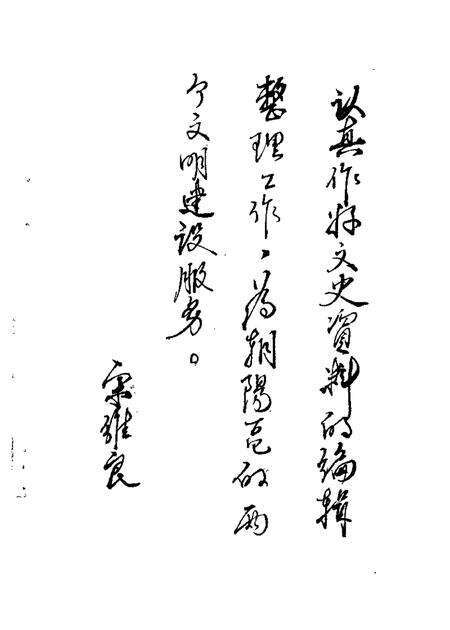 认真作好文史资料的编辑
整理工作，为朝阳区的两
个文明建设服务。
宋维良